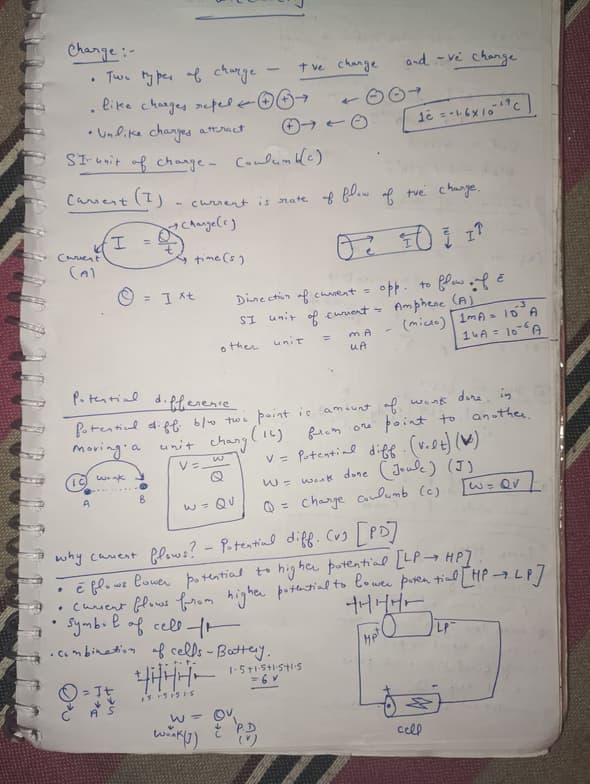 Charge :-
• Two types of charge — +ve charge and -ve charge
• like charges repel ← ⊕ ⊕ → ← ⊖ ⊖ →
• Unlike charges attract ⊕ → ← ⊖
1ē = -1.6 × 10⁻¹⁹ C
SI-unit of charge - Coulumb(c)
Current (I) - current is rate of flow of +ve charge.
I = Q/t
→ charge(c)
→ time (s)
Current (A)
e I
ē ↓ I ↑
Q = I × t
Direction of current = opp. to flow of ē
SI unit of current = Amphere (A)
other unit = mA - (micro)
uA
1mA = 10⁻³ A
1uA = 10⁻⁶ A
Potential difference
Potential diff. b/w two point is amount of work done in
moving a unit charg (1C) from one point to another.
1C work
A B
V = W/Q
W = QV
V = Potential diff. (volt) (V)
W = work done (Joule) (J)
Q = charge coulumb (c)
W = QV
why current flows? - Potential diff. (v) [PD]
• ē flows lower potential to higher potential [LP → HP]
• current flows from higher potential to lower potential [HP → LP]
• symbol of cell -
• combination of cells - Battery.
1.5 1.5 1.5 1.5
1.5+1.5+1.5+1.5
= 6 v
Q = It
C A S
W = QV
work(J) C P.D (V)
HP⁺ LP⁻
+ -
cell